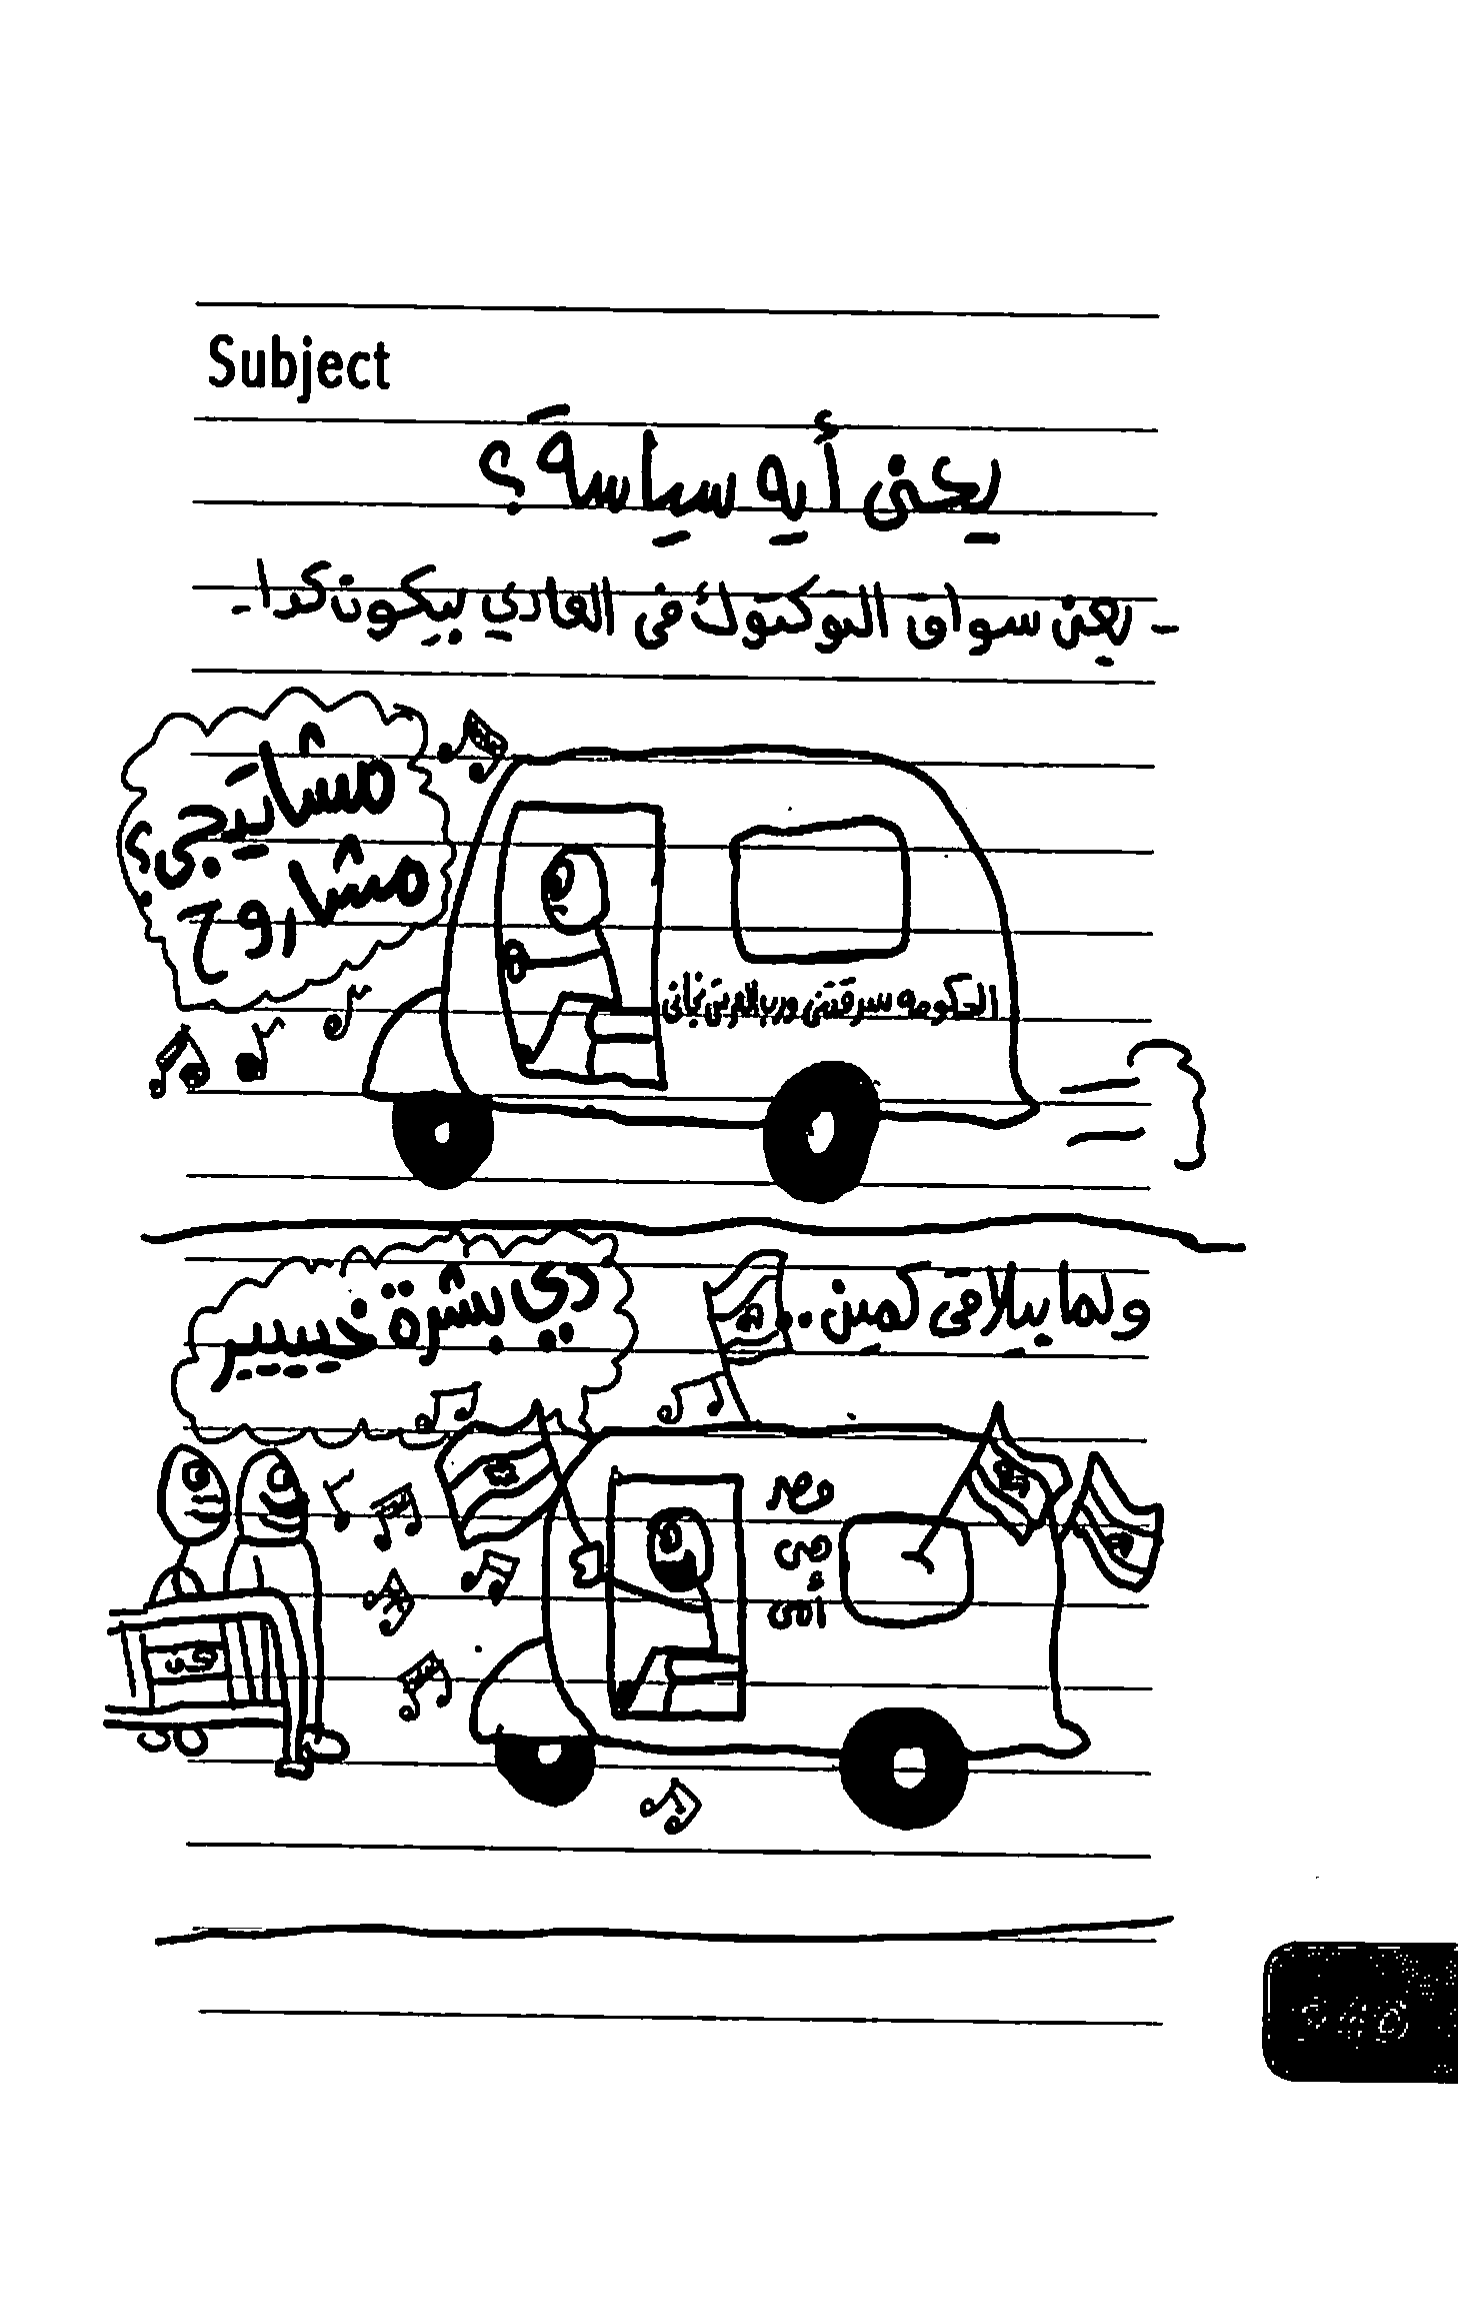 Subject
يعنى أيه سياسة؟
- يعنى سواق التوكتوك فى العادي بيكون كدا -
مشاتيجى؟
مشاروح
الحكومه سرقتنى ورب العرش نجانى
ولما بيلاقى كمين..
دي بشرة خييير
مصر
هى
أمى